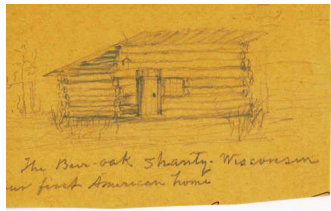 The Burr-oak Shanty. Wisconsin
our first American home